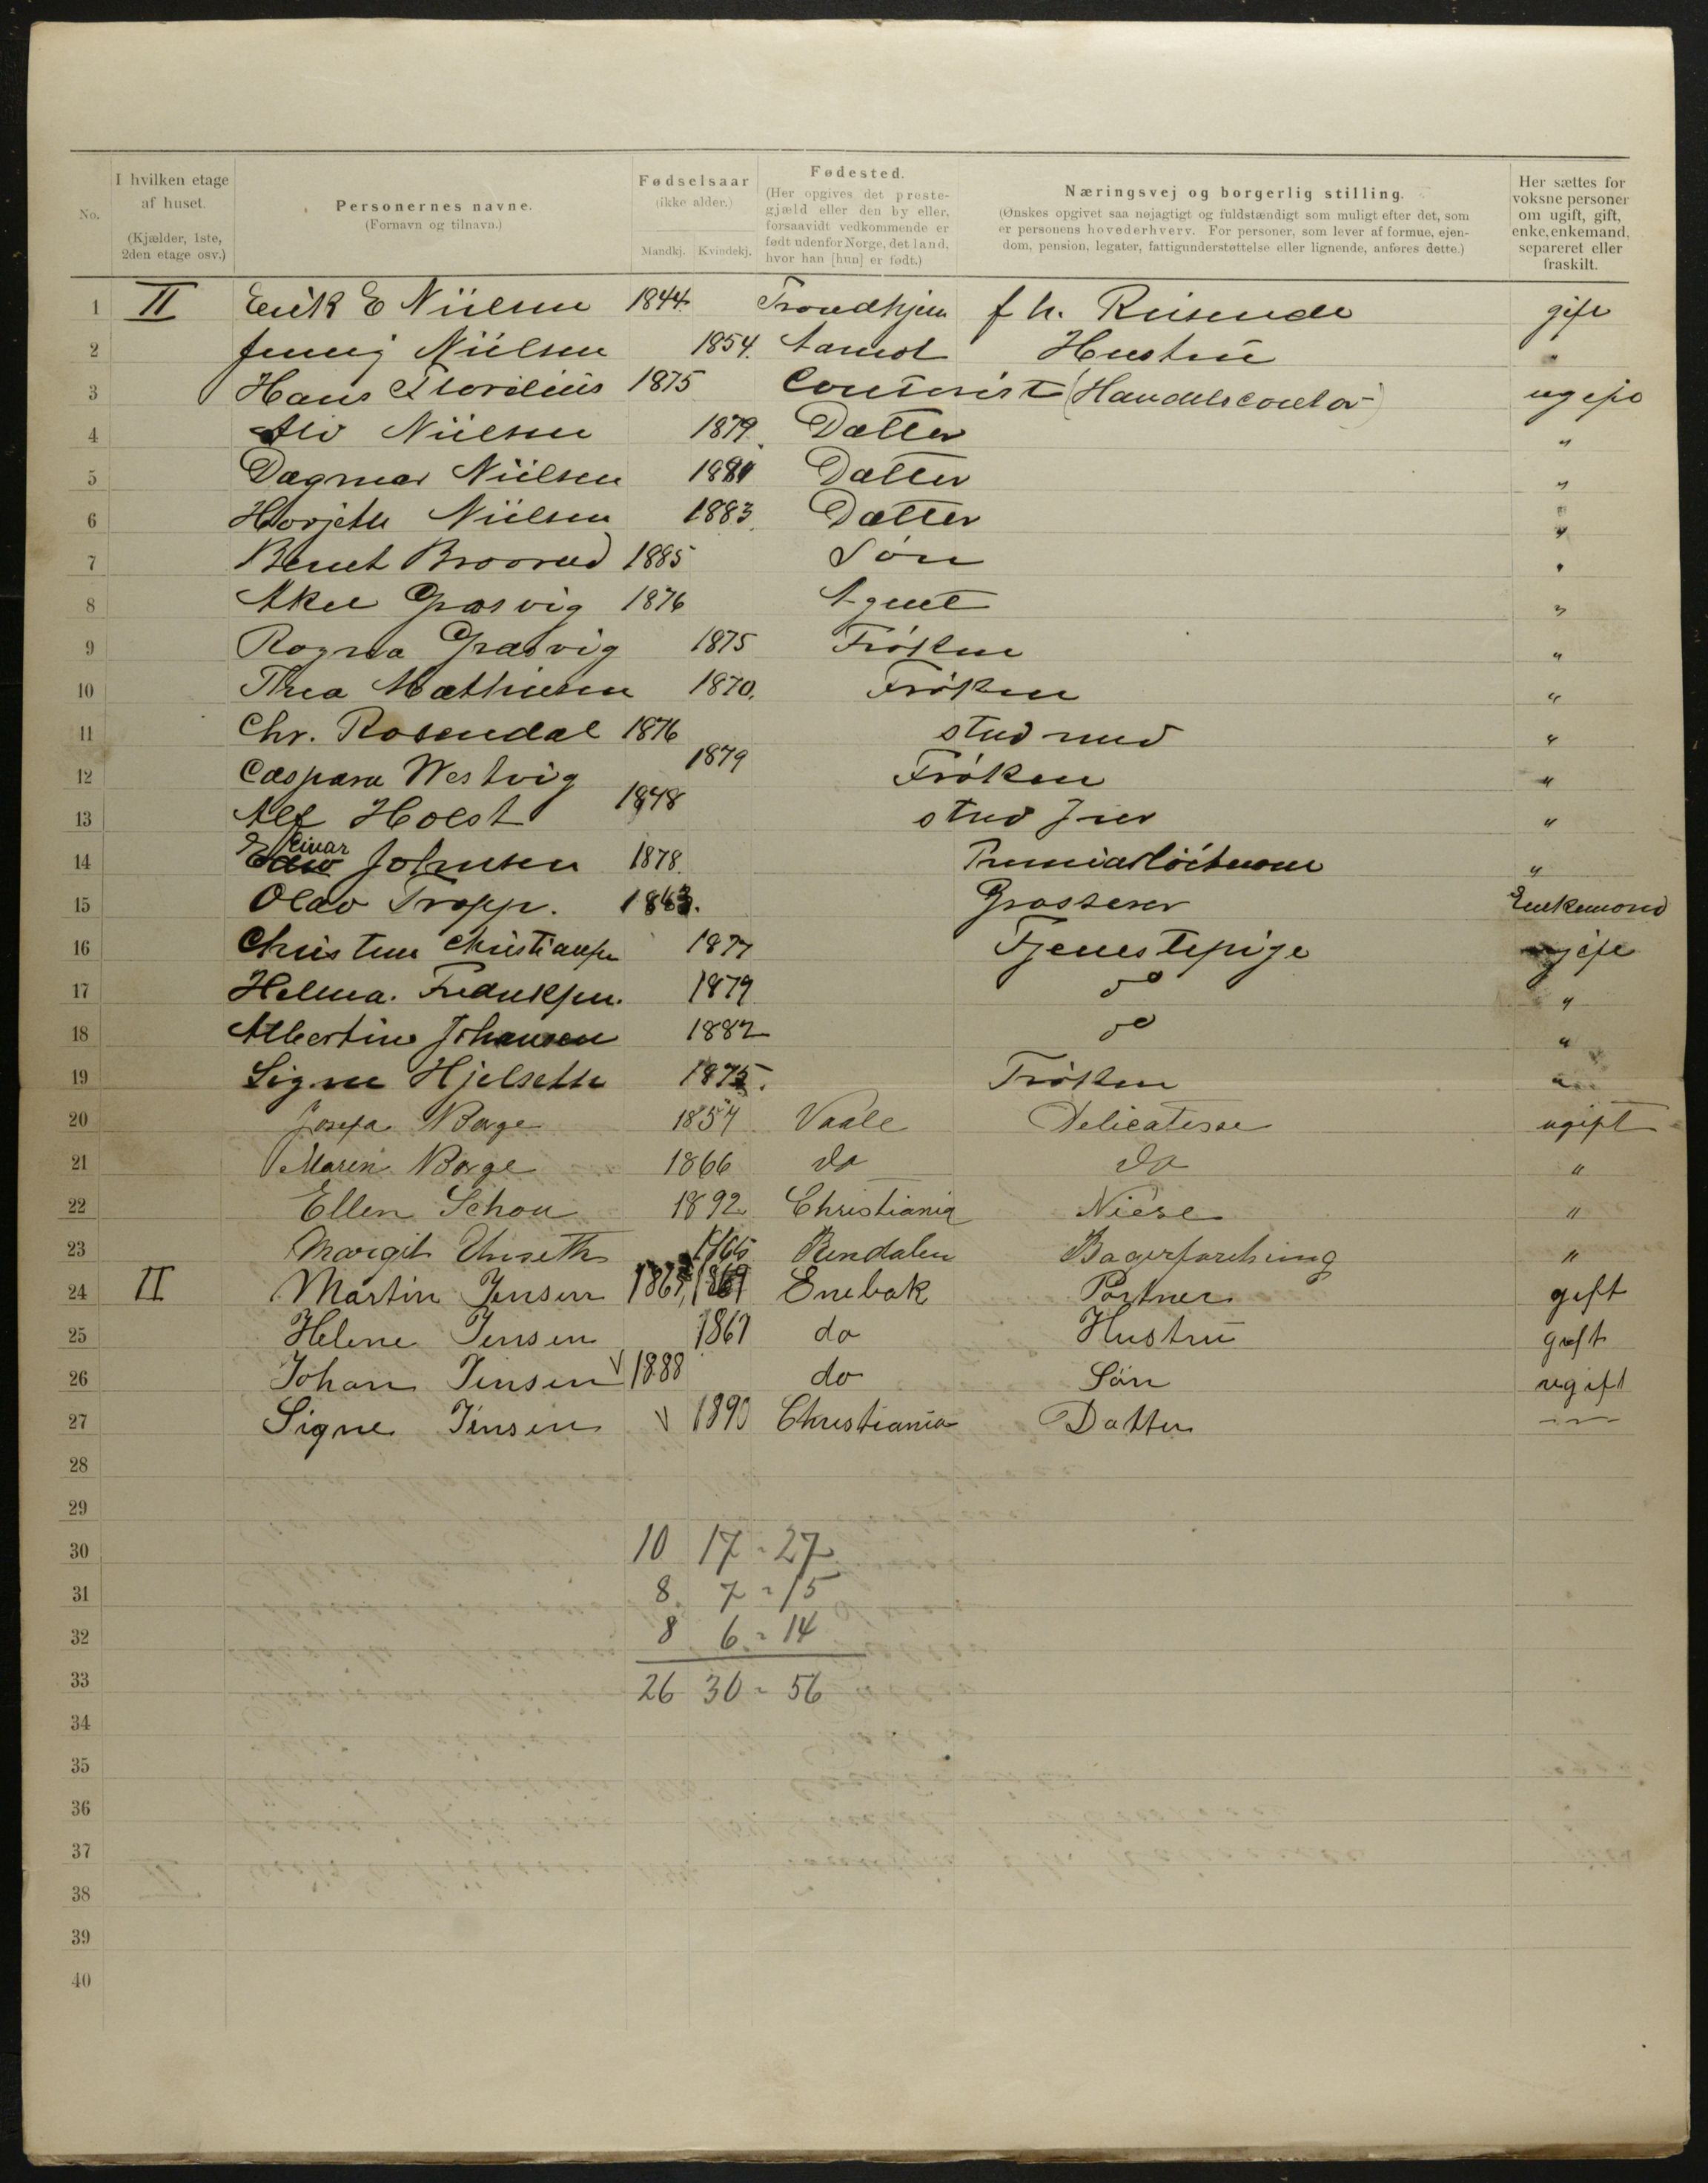 No.
I hvilken etage af huset. (Kjælder, 1ste, 2den etage osv.)
Personernes navne. (Fornavn og tilnavn.)
Fødselsaar (ikke alder.) Mandkj. Kvindekj.
Fødested. (Her opgives det prestegjæld eller den by eller, forsaavidt vedkommende er født udenfor Norge, det land, hvor han [hun] er født.)
Næringsvej og borgerlig stilling. (Ønskes opgivet saa nøjagtigt og fuldstændigt som muligt efter det, som er personens hovederhverv. For personer, som lever af formue, ejendom, pension, legater, fattigunderstøttelse eller lignende, anføres dette.)
Her sættes for voksne personer om ugift, gift, enke, enkemand, separeret eller fraskilt.
1 II Erik E Nielsen 1844 Trondhjem f h. Reisende gift
2 Jenny Nielsen 1854. Aamot Hustru "
3 Hans 1875 Contorist (Handelscontor) ugift
4 Nielsen 1879 Datter "
5 Dagmar Nielsen Datter "
6 Nielsen 1883 Datter "
7 Bernt 1885 Søn "
8 Græsvig 1876 Agent "
9 Ragna Græsvig 1875 Frøken "
10 Thea Mathiesen 1870. Frøken "
11 Chr. Rosendal 1876 stud med "
12 Caspara Westvig 1879 Frøken "
13 Alf Holst stud "
14 Einar Johnsen 1878. "
15 Olav Tropp. Grosserer Enkemand
16 Christiansen 1877 Tjenestepige ugift
17 Helma. Fredriksen. 1879 do "
18 Albertine Johansen 1882 do "
19 Signe Hjelseth 1875. Frøken "
20 Josefa Borge 1857 Vaale Delicatesse ugift
21 Maren Borge 1866 do do "
22 Ellen Schou 1892 Christiania Niese "
23 Margit Unseth Rendalen Bagerforetning "
24 II Martin Jensen Enebak Portner gift
25 Helene Jensen 1867 do Hustru gift
26 Johan Jensen 1888 do Søn ugift
27 Signe Jensen 1890 Christiania Datter
28
29
30 10 17 = 27
31 8 7 = 15
32 8 6 = 14
33 26 30 = 56
34
35
36
37
38
39
40